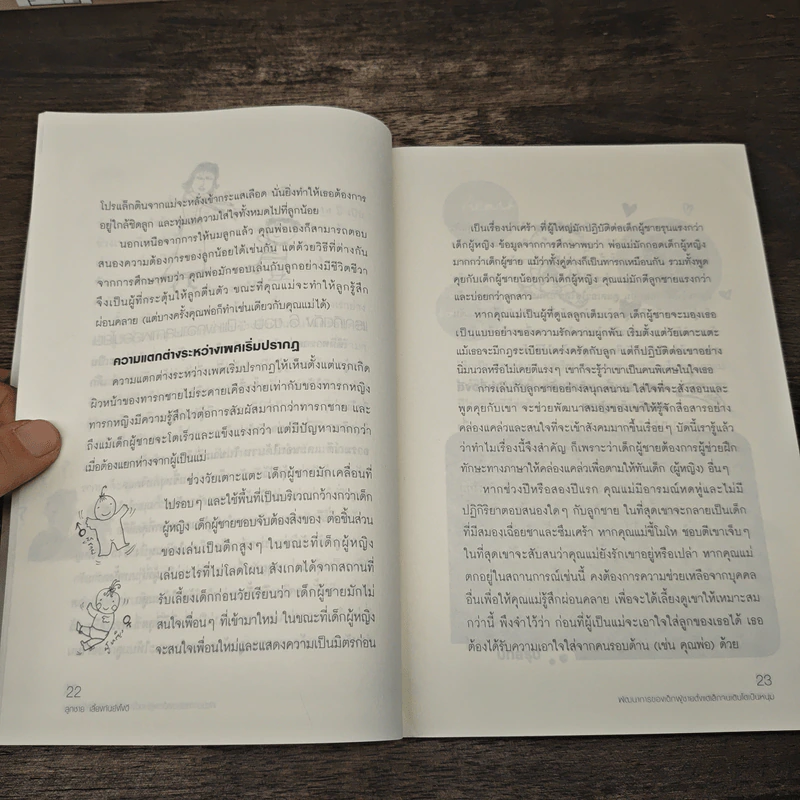 โปรแล็กตินจากแม่จะหลั่งเข้ากระแสเลือด นั่นยิ่งทำให้เธอต้องการ
อยู่ใกล้ชิดลูก และทุ่มเทความใส่ใจทั้งหมดไปที่ลูกน้อย
นอกเหนือจากการให้นมลูกแล้ว คุณพ่อเองก็สามารถตอบ
สนองความต้องการของลูกน้อยได้เช่นกัน แต่ด้วยวิธีที่ต่างกัน
จากการศึกษาพบว่า คุณพ่อมักชอบเล่นกับลูกอย่างมีชีวิตชีวา
จึงเป็นผู้ที่กระตุ้นให้ลูกตื่นตัว ขณะที่คุณแม่จะทำให้ลูกรู้สึก
ผ่อนคลาย (แต่บางครั้งคุณพ่อก็ทำเช่นเดียวกับคุณแม่ได้)
ความแตกต่างระหว่างเพศเริ่มปรากฏ
ความแตกต่างระหว่างเพศเริ่มปรากฏให้เห็นตั้งแต่แรกเกิด
ผิวหน้าของทารกชายไม่ระคายเคืองง่ายเท่ากับของทารกหญิง
ทารกหญิงมีความรู้สึกไวต่อการสัมผัสมากกว่าทารกชาย และ
ถึงแม้เด็กผู้ชายจะโตเร็วและแข็งแรงกว่า แต่มีปัญหามากกว่า
เมื่อต้องแยกห่างจากผู้เป็นแม่
ช่วงวัยเตาะแตะ เด็กผู้ชายมักเคลื่อนที่
ไปรอบๆ และใช้พื้นที่เป็นบริเวณกว้างกว่าเด็ก
ผู้หญิง เด็กผู้ชายชอบจับต้องสิ่งของ ต่อชิ้นส่วน
ของเล่นเป็นตึกสูงๆ ในขณะที่เด็กผู้หญิง
เล่นอะไรที่ไม่โลดโผน สังเกตได้จากสถานที่
รับเลี้ยงเด็กก่อนวัยเรียนว่า เด็กผู้ชายมักไม่
สนใจเพื่อนๆ ที่เข้ามาใหม่ ในขณะที่เด็กผู้หญิง
จะสนใจเพื่อนใหม่และแสดงความเป็นมิตรก่อน
22
ลูกชาย เลี้ยงกันยังไงดี
เป็นเรื่องน่าเศร้า ที่ผู้ใหญ่มักปฏิบัติต่อเด็กผู้ชายรุนแรงกว่า
เด็กผู้หญิง ข้อมูลจากการศึกษาพบว่า พ่อแม่มักกอดเด็กผู้หญิง
มากกว่าเด็กผู้ชาย แม้ว่าทั้งคู่ต่างก็เป็นทารกเหมือนกัน รวมทั้งพูด
คุยกับเด็กผู้ชายน้อยกว่าเด็กผู้หญิง คุณแม่มักตีลูกชายแรงกว่า
และบ่อยกว่าลูกสาว
หากคุณแม่เป็นผู้ที่ดูแลลูกเต็มเวลา เด็กผู้ชายจะมองเธอ
เป็นแบบอย่างของความรักความผูกพัน เริ่มตั้งแต่วัยเตาะแตะ
แม้เธอจะมีกฎระเบียบเคร่งครัดกับลูก แต่ก็ปฏิบัติต่อเขาอย่าง
นิ่มนวลหรือไม่เคยตีแรงๆ เขาก็จะรู้ว่าเขาเป็นคนพิเศษในใจเธอ
การเล่นกับลูกชายอย่างสนุกสนาน ใส่ใจที่จะสั่งสอนและ
พูดคุยกับเขา จะช่วยพัฒนาสมองของเขาให้รู้จักสื่อสารอย่าง
คล่องแคล่วและสนใจที่จะเข้าสังคมมากขึ้นเรื่อยๆ บัดนี้เรารู้แล้ว
ว่าทำไมเรื่องนี้จึงสำคัญ ก็เพราะว่าเด็กผู้ชายต้องการผู้ช่วยฝึก
ทักษะทางภาษาให้คล่องแคล่วเพื่อตามให้ทันเด็ก (ผู้หญิง) อื่นๆ
หากช่วงปีหรือสองปีแรก คุณแม่มีอารมณ์หดหู่และไม่มี
ปฏิกิริยาตอบสนองใดๆ กับลูกชาย ในที่สุดเขาจะกลายเป็นเด็ก
ที่มีสมองเฉื่อยชาและซึมเศร้า หากคุณแม่ขี้โมโห ชอบตีเขาเจ็บๆ
ในที่สุดเขาจะสับสนว่าคุณแม่ยังรักเขาอยู่หรือเปล่า หากคุณแม่
ตกอยู่ในสถานการณ์เช่นนี้ คงต้องการความช่วยเหลือจากบุคคล
อื่นเพื่อให้คุณแม่รู้สึกผ่อนคลาย เพื่อจะได้เลี้ยงดูเขาให้เหมาะสม
กว่านี้ พึงจำไว้ว่า ก่อนที่ผู้เป็นแม่จะเอาใจใส่ลูกของเธอได้ เธอ
ต้องได้รับความเอาใจใส่จากคนรอบด้าน (เช่น คุณพ่อ) ด้วย
23
พัฒนาการของเด็กผู้ชายตั้งแต่เล็กจนเติบโตเป็นหนุ่ม